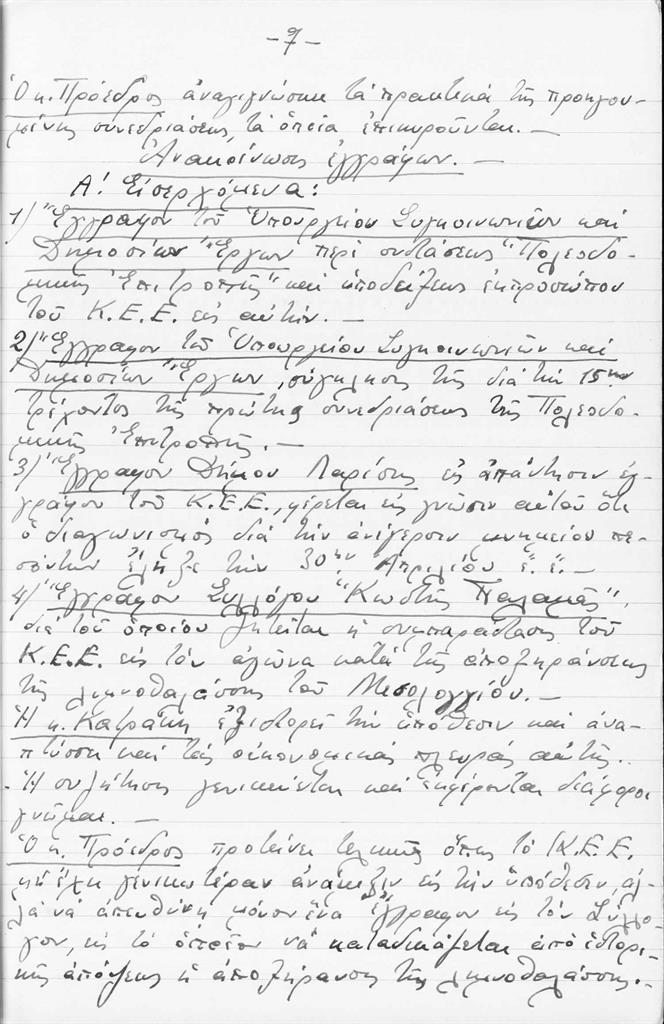 -7-
Ὁ κ. Πρόεδρος ἀναγιγνώσκει τά πρακτικά τῆς προηγου-
μένης συνεδριάσεως, τά ὁποῖα ἐπικυροῦνται. —
Ἀνακοίνωσις ἐγγράφων. —
Α! Εἰσερχόμενα:
1) Ἔγγραφον τοῦ Ὑπουργείου Συγκοινωνιῶν καί
Δημοσίων Ἔργων περί συστάσεως "Πολεοδο-
μικῆς Ἐπιτροπῆς" καί ὑποδείξεως ἐκπροσώπου
τοῦ Κ.Ε.Ε. εἰς αὐτήν. —
2) Ἔγγραφον τοῦ Ὑπουργείου Συγκοινωνιῶν καί
Δημοσίων Ἔργων, σύγκλησις τῆς διά τήν 15ην
τρέχοντος τῆς πρώτης συνεδριάσεως τῆς Πολεοδο-
μικῆς Ἐπιτροπῆς. —
3) Ἔγγραφον Δήμου Λαρίσης εἰς ἀπάντησιν ἐγ-
γράφου τοῦ Κ.Ε.Ε., φέρεται εἰς γνῶσιν αὐτοῦ ὅτι
ὁ διαγωνισμός διά τήν ἀνέγερσιν μνημείου πε-
σόντων ἔληξε τήν 30ήν Ἀπριλίου ἔ.ἔ. —
4) Ἔγγραφον Συλλόγου "Κωστῆς Παλαμᾶς",
διά τοῦ ὁποίου ζητεῖται ἡ συμπαράστασις τοῦ
Κ.Ε.Ε. εἰς τόν ἀγῶνα κατά τῆς ἀποξηράνσεως
τῆς λιμνοθαλάσσης τοῦ Μεσολογγίου. —
Ἡ κ. Κατράκη ἐξιστορεῖ τήν ὑπόθεσιν καί ἀνα-
πτύσσει καί τάς οἰκονομικάς πλευράς αὐτῆς..
Ἡ συζήτησις γενικεύεται καί ἐκφέρονται διάφοροι
γνῶμαι. —
Ὁ κ. Πρόεδρος προτείνει τελικῶς ὅπως τό Κ.Ε.Ε.
μή ἔχῃ γενικωτέραν ἀνάμειξιν εἰς τήν ὑπόθεσιν, ἀλ-
λά νά ἀπευθύνῃ μόνον ἕνα ἔγγραφον εἰς τόν Σύλλο-
γον, εἰς τό ὁποῖον νά καταδικάζεται ἀπό ἱστορι-
κῆς ἀπόψεως ἡ ἀποξήρανσις τῆς λιμνοθαλάσσης. —